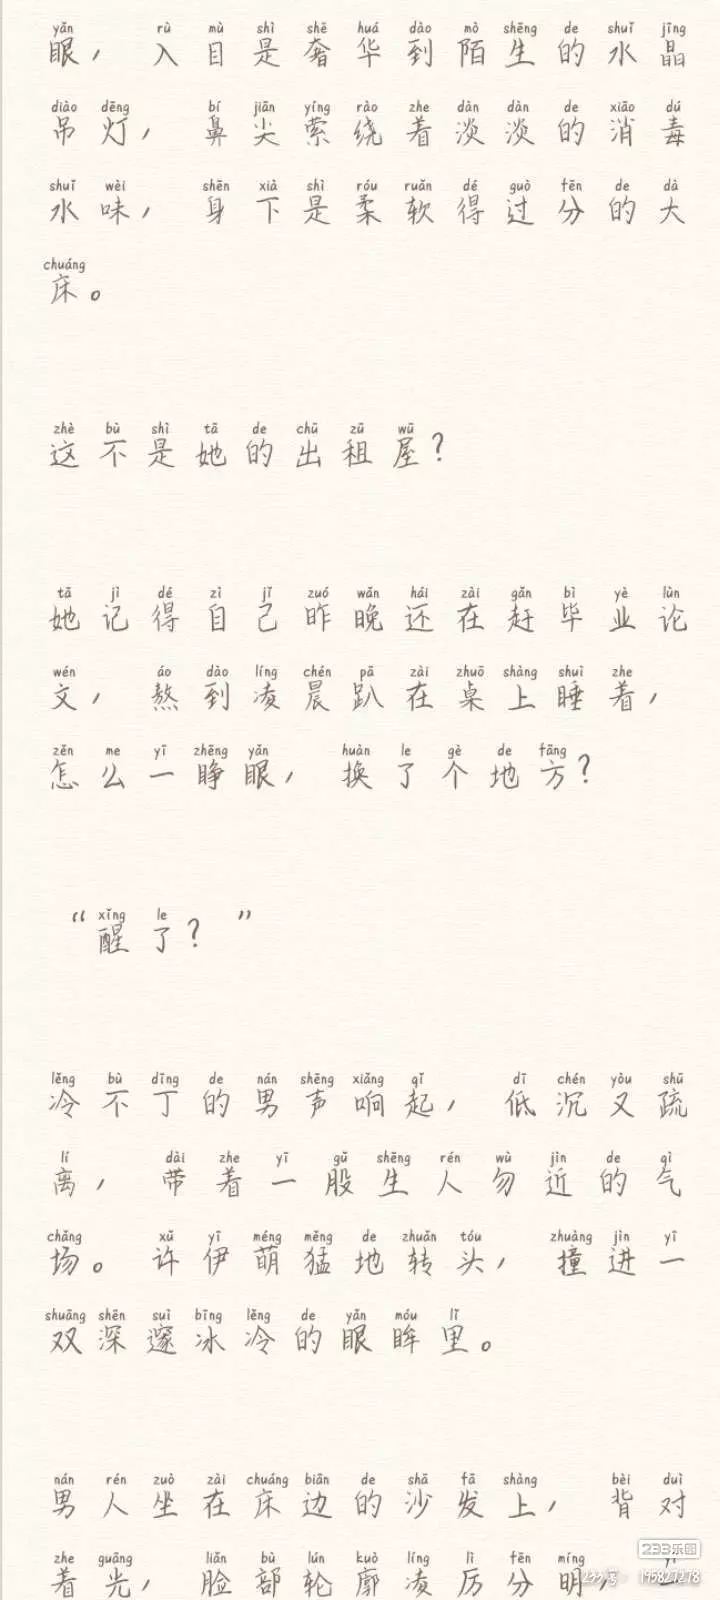 yǎn rù mù shì shē huá dào mò shēng de shuǐ jīng
眼，入目是奢华到陌生的水晶
diào dēng bí jiān yíng rào zhe dàn dàn de xiāo dú
吊灯，鼻尖萦绕着淡淡的消毒
shuǐ wèi shēn xià shì róu ruǎn dé guò fēn de dà
水味，身下是柔软得过分的大
chuáng
床。
zhè bù shì tā de chū zū wū
这不是她的出租屋？
tā jì dé zì jǐ zuó wǎn hái zài gǎn bì yè lùn
她记得自己昨晚还在赶毕业论
wén áo dào líng chén pā zài zhuō shàng shuì zhe
文，熬到凌晨趴在桌上睡着，
zěn me yī zhēng yǎn huàn le gè de fāng
怎么一睁眼，换了个地方？
xǐng le
“醒了？”
lěng bù dīng de nán shēng xiǎng qǐ dī chén yòu shū
冷不丁的男声响起，低沉又疏
lí dài zhe yī gǔ shēng rén wù jìn de qì
离，带着一股生人勿近的气
chǎng xǔ yī méng měng de zhuǎn tóu zhuàng jìn yī
场。许伊萌猛地转头，撞进一
shuāng shēn suì bīng lěng de yǎn móu lǐ
双深邃冰冷的眼眸里。
nán rén zuò zài chuáng biān de shā fā shàng bèi duì
男人坐在床边的沙发上，背对
zhe guāng liǎn bù lún kuò líng lì fēn míng
着光，脸部轮廓凌厉分明，
233乐园
233号：195827278